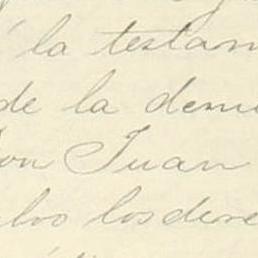 á la testam
de la dem
on Juan
lvo los dere